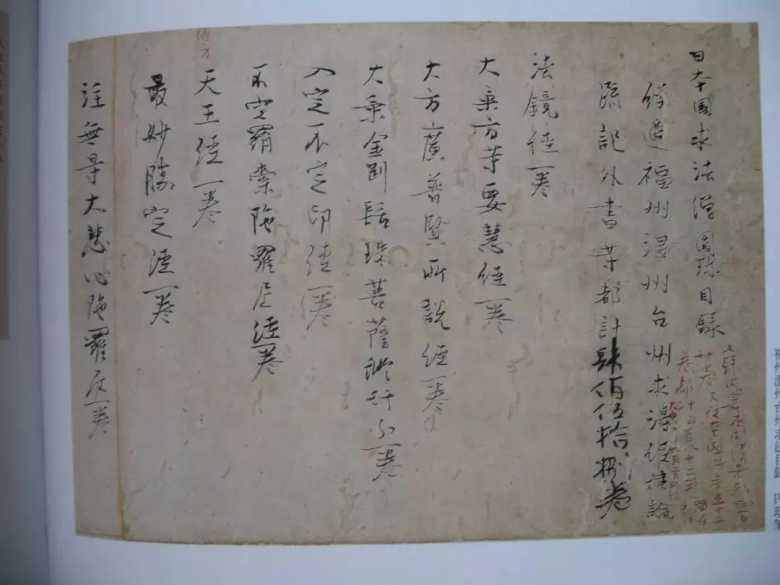 日本国求法僧圓珎目録
經過福州温州台州求得經律論
疏記外書等都計肆佰伍拾捌卷
法鏡經一卷
大乘方等要慧經一卷
大方廣普賢所說經一卷
大乘金剛髻珠菩薩修行分一卷
入定不定印經一卷
不空羂索陀羅尼經一卷
天王經一卷
最妙勝定經一卷
注無导大悲心陀羅尼一卷